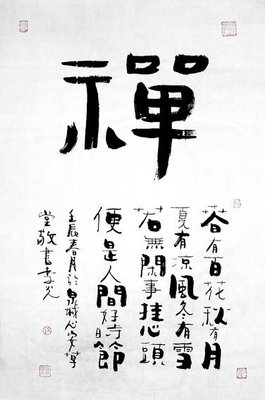 禪
春有百花秋有月
夏有凉風冬有雪
若無閑事挂心頭
便是人間好時節
壬辰春月於泉城心安草
堂敬書